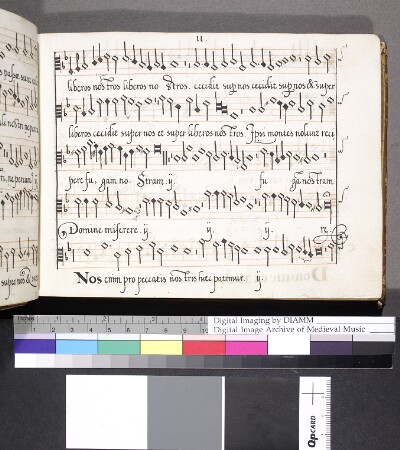 11.
liberos nos tros liberos no stros. cecidit sup nos cecidit sup nos & super
liberos cecidit super nos et super liberos nos tros Ipsi montes nolunt reci
pere fu, gam no. Stram. ij. fu ga nostram
Domine miserere. ij. ij. ij. re.
Nos enim pro peccatis nos tris hec patimur. ij.
Digital Imaging by DIAMM
Digital Image Archive of Medieval Music
inches 1 2 3 4 5 6
1 2 3 4 5 6 7 8 9 10
QPCARD